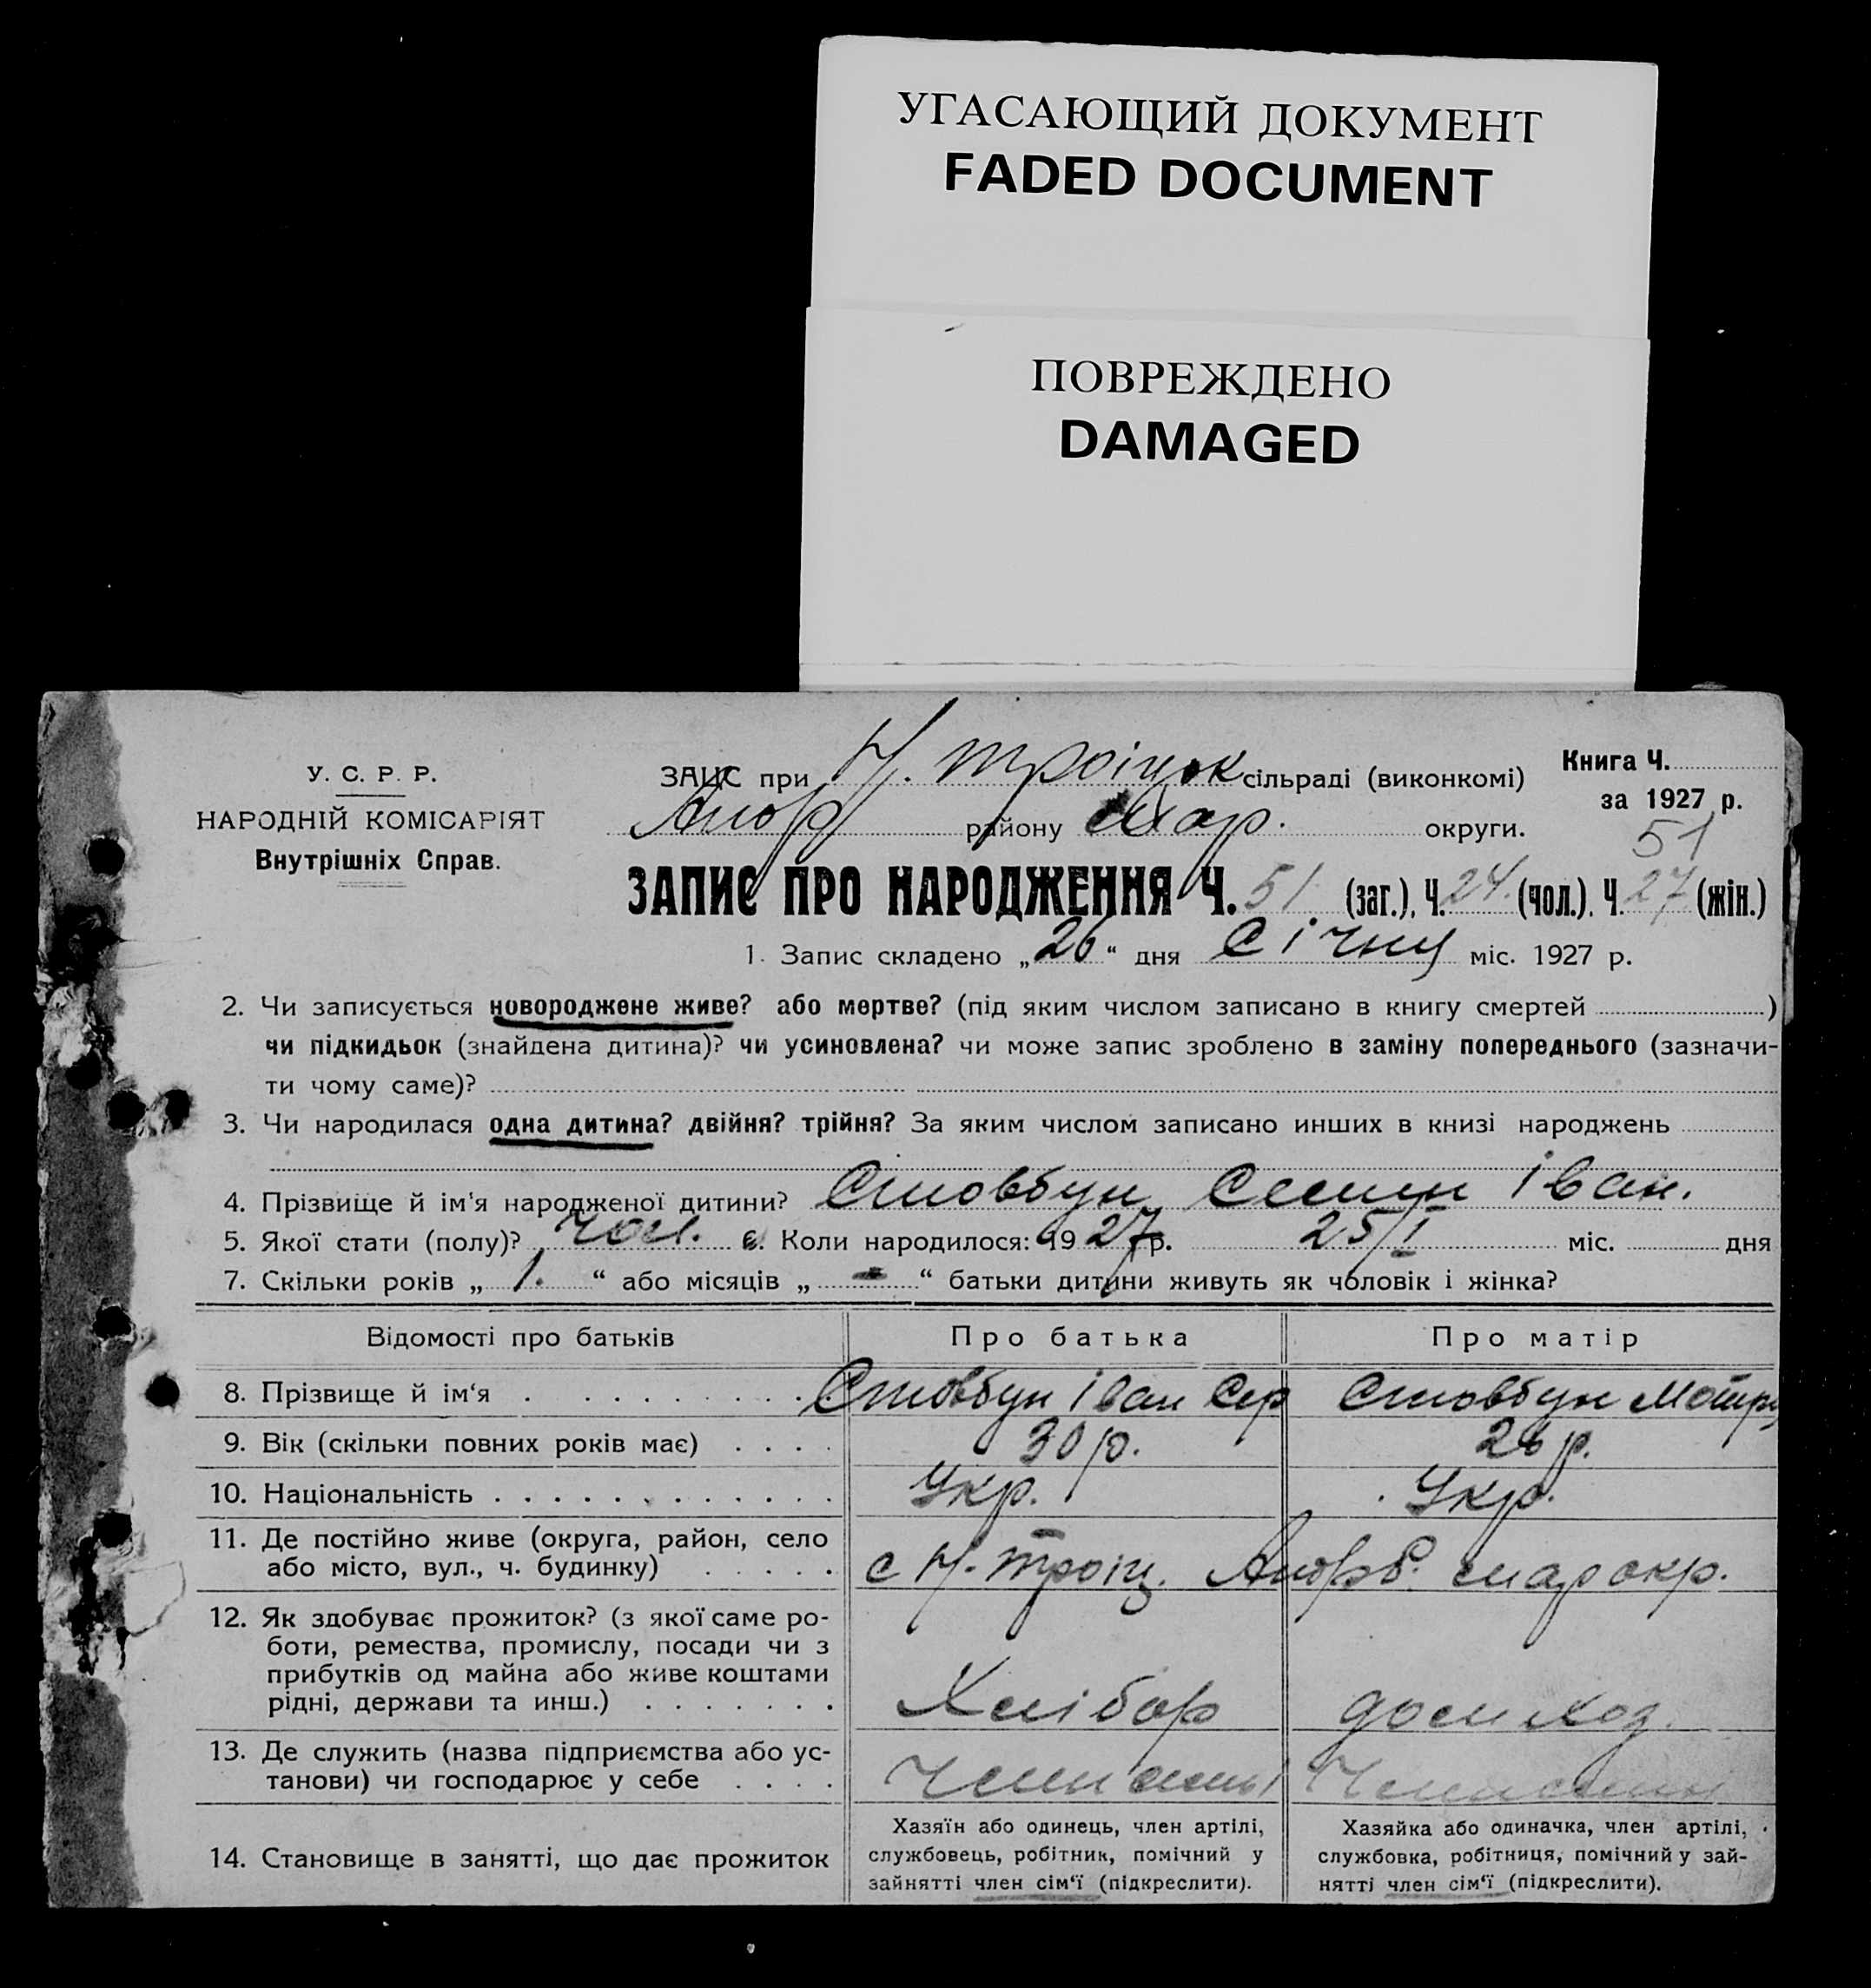 УГАСАЮЩИЙ ДОКУМЕНТ
FADED DOCUMENT
ПОВРЕЖДЕНО
DAMAGED
У. С. Р. Р.
НАРОДНІЙ КОМІСАРІЯТ
Внутрішніх Справ.
Книга Ч.
за 1927 р.
51
ЗАЦС при Н. Троіцьк сільраді (виконкомі)
району Мар. округи.
ЗАПИС ПРО НАРОДЖЕННЯ Ч. 51 (заг.), Ч. 24 (чол.). Ч. 27 (жін.)
1. Запис складено „26“ дня Січня міс. 1927 р.
2. Чи записується новороджене живе? або мертве? (під яким числом записано в книгу смертей )
чи підкидьок (знайдена дитина)? чи усиновлена? чи може запис зроблено в заміну попереднього (зазначи-
ти чому саме)?
3. Чи народилася одна дитина? двійня? трійня? За яким числом записано инших в книзі народжень
4. Прізвище й ім'я народженої дитини? Стовбун Семен Іван.
5. Якої стати (полу)? чол. 6. Коли народилося: 1927 р. 25/I міс. дня
7. Скільки років „1.“ або місяців „-“ батьки дитини живуть як чоловік і жінка?
Відомості про батьків Про батька Про матір
8. Прізвище й ім'я Стовбун Іван Сер Стовбун Мотря
9. Вік (скільки повних років має) 30 р. 26 р.
10. Національність Укр. Укр.
11. Де постійно живе (округа, район, село
або місто, вул., ч. будинку) с Н.-Троіц. мар окр.
12. Як здобуває прожиток? (з якої саме ро-
боти, ремества, промислу, посади чи з
прибутків од майна або живе коштами
рідні, держави та инш.) Хлібор дом хоз.
13. Де служить (назва підприємства або ус-
танови) чи господарює у себе
14. Становище в занятті, що дає прожиток
Хазяїн або одинець, член артілі,
службовець, робітник, помічний у
зайнятті член сім'ї (підкреслити).
Хазяйка або одиначка, член артілі,
службовка, робітниця, помічний у зай-
нятті член сім'ї (підкреслити).